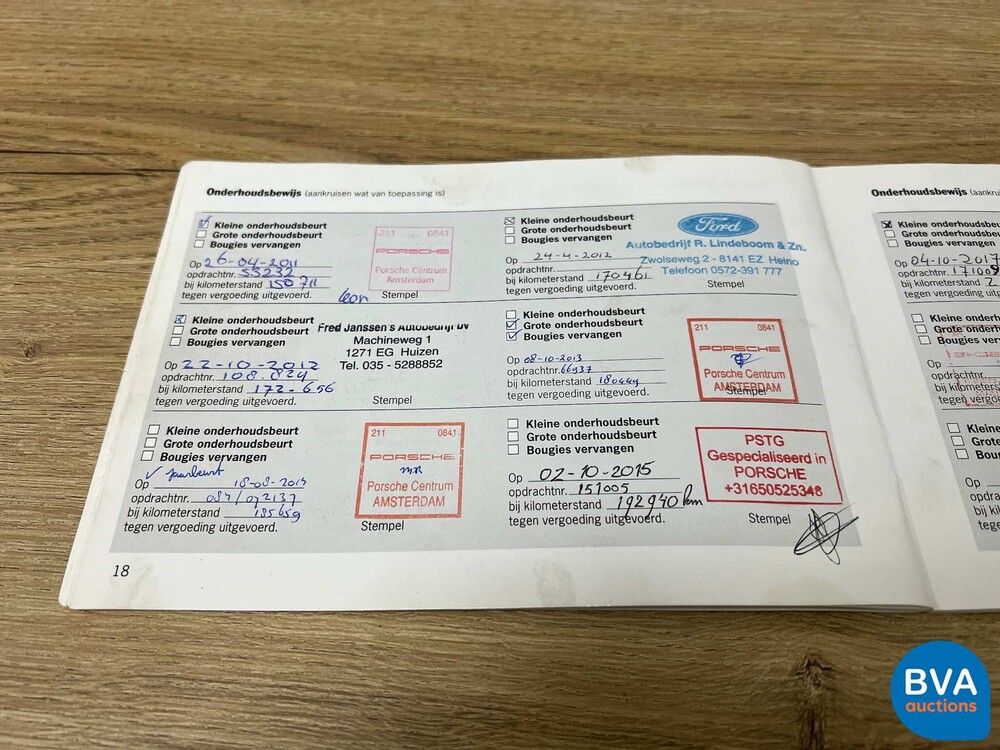 Onderhoudsbewijs (aankruisen wat van toepassing is)
Kleine onderhoudsbeurt
Grote onderhoudsbeurt
Bougies vervangen
Op 26-04-2011
opdrachtnr. 53232
bij kilometerstand 150711
tegen vergoeding uitgevoerd.
211 0841
PORSCHE
Porsche Centrum
Amsterdam
Stempel
Kleine onderhoudsbeurt
Grote onderhoudsbeurt
Bougies vervangen
Op 24-4-2012
opdrachtnr.
bij kilometerstand 170461
tegen vergoeding uitgevoerd.
Ford
Autobedrijf R. Lindeboom & Zn.
Zwolseweg 2 - 8141 EZ Heino
Telefoon 0572-391 777
Stempel
Kleine onderhoudsbeurt
Grote onderhoudsbeurt
Bougies vervangen
Op 22-10-2012
opdrachtnr. 108.824
bij kilometerstand 172-656
tegen vergoeding uitgevoerd.
Fred Janssen's Autobedrijf bv
Machineweg 1
1271 EG Huizen
Tel. 035 - 5288852
Stempel
Kleine onderhoudsbeurt
Grote onderhoudsbeurt
Bougies vervangen
Op 08-10-2013
opdrachtnr. 66937
bij kilometerstand 180449
tegen vergoeding uitgevoerd.
211 0841
PORSCHE
Porsche Centrum
AMSTERDAM
Stempel
Kleine onderhoudsbeurt
Grote onderhoudsbeurt
Bougies vervangen
Op 18-08-2014
opdrachtnr. 084/072137
bij kilometerstand 185659
tegen vergoeding uitgevoerd.
211 0841
PORSCHE
Porsche Centrum
AMSTERDAM
Stempel
Kleine onderhoudsbeurt
Grote onderhoudsbeurt
Bougies vervangen
Op 02-10-2015
opdrachtnr. 151005
bij kilometerstand 192940 km
tegen vergoeding uitgevoerd.
PSTG
Gespecialiseerd in
PORSCHE
+31650525348
Stempel
18
Onderhoudsbewijs (aankru
Kleine onderh
Grote onderh
Bougies verv
Op 04-10-2017
opdrachtnr. 171009
bij kilometerstand 2
tegen vergoeding uitg
Kleine onderh
Grote onderh
Bougies verv
Op
opdrachtnr.
bij kilometers
tegen vergoe
Kleine o
Grote o
Bougie
Op
opdrac
bij kilo
tegen
BVA
auctions